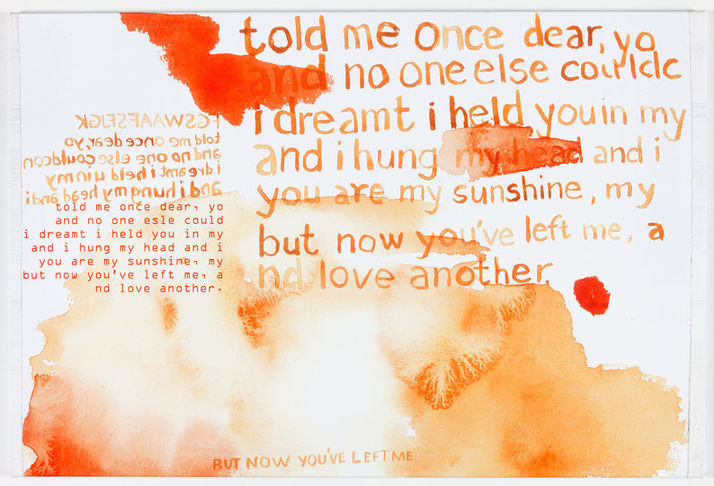 told me once dear, yo
and no one else could
i dreamt i held you in my
and i hung my head and i
you are my sunshine, my
but now you've left me, a
nd love another.
told me once dear, yo
and no one else could
i dreamt i held you in my
and i hung my head and i
told me once dear, yo
and no one esle could
i dreamt i held you in my
and i hung my head and i
you are my sunshine, my
but now you've left me, a
nd love another.
BUT NOW YOU'VE LEFT ME